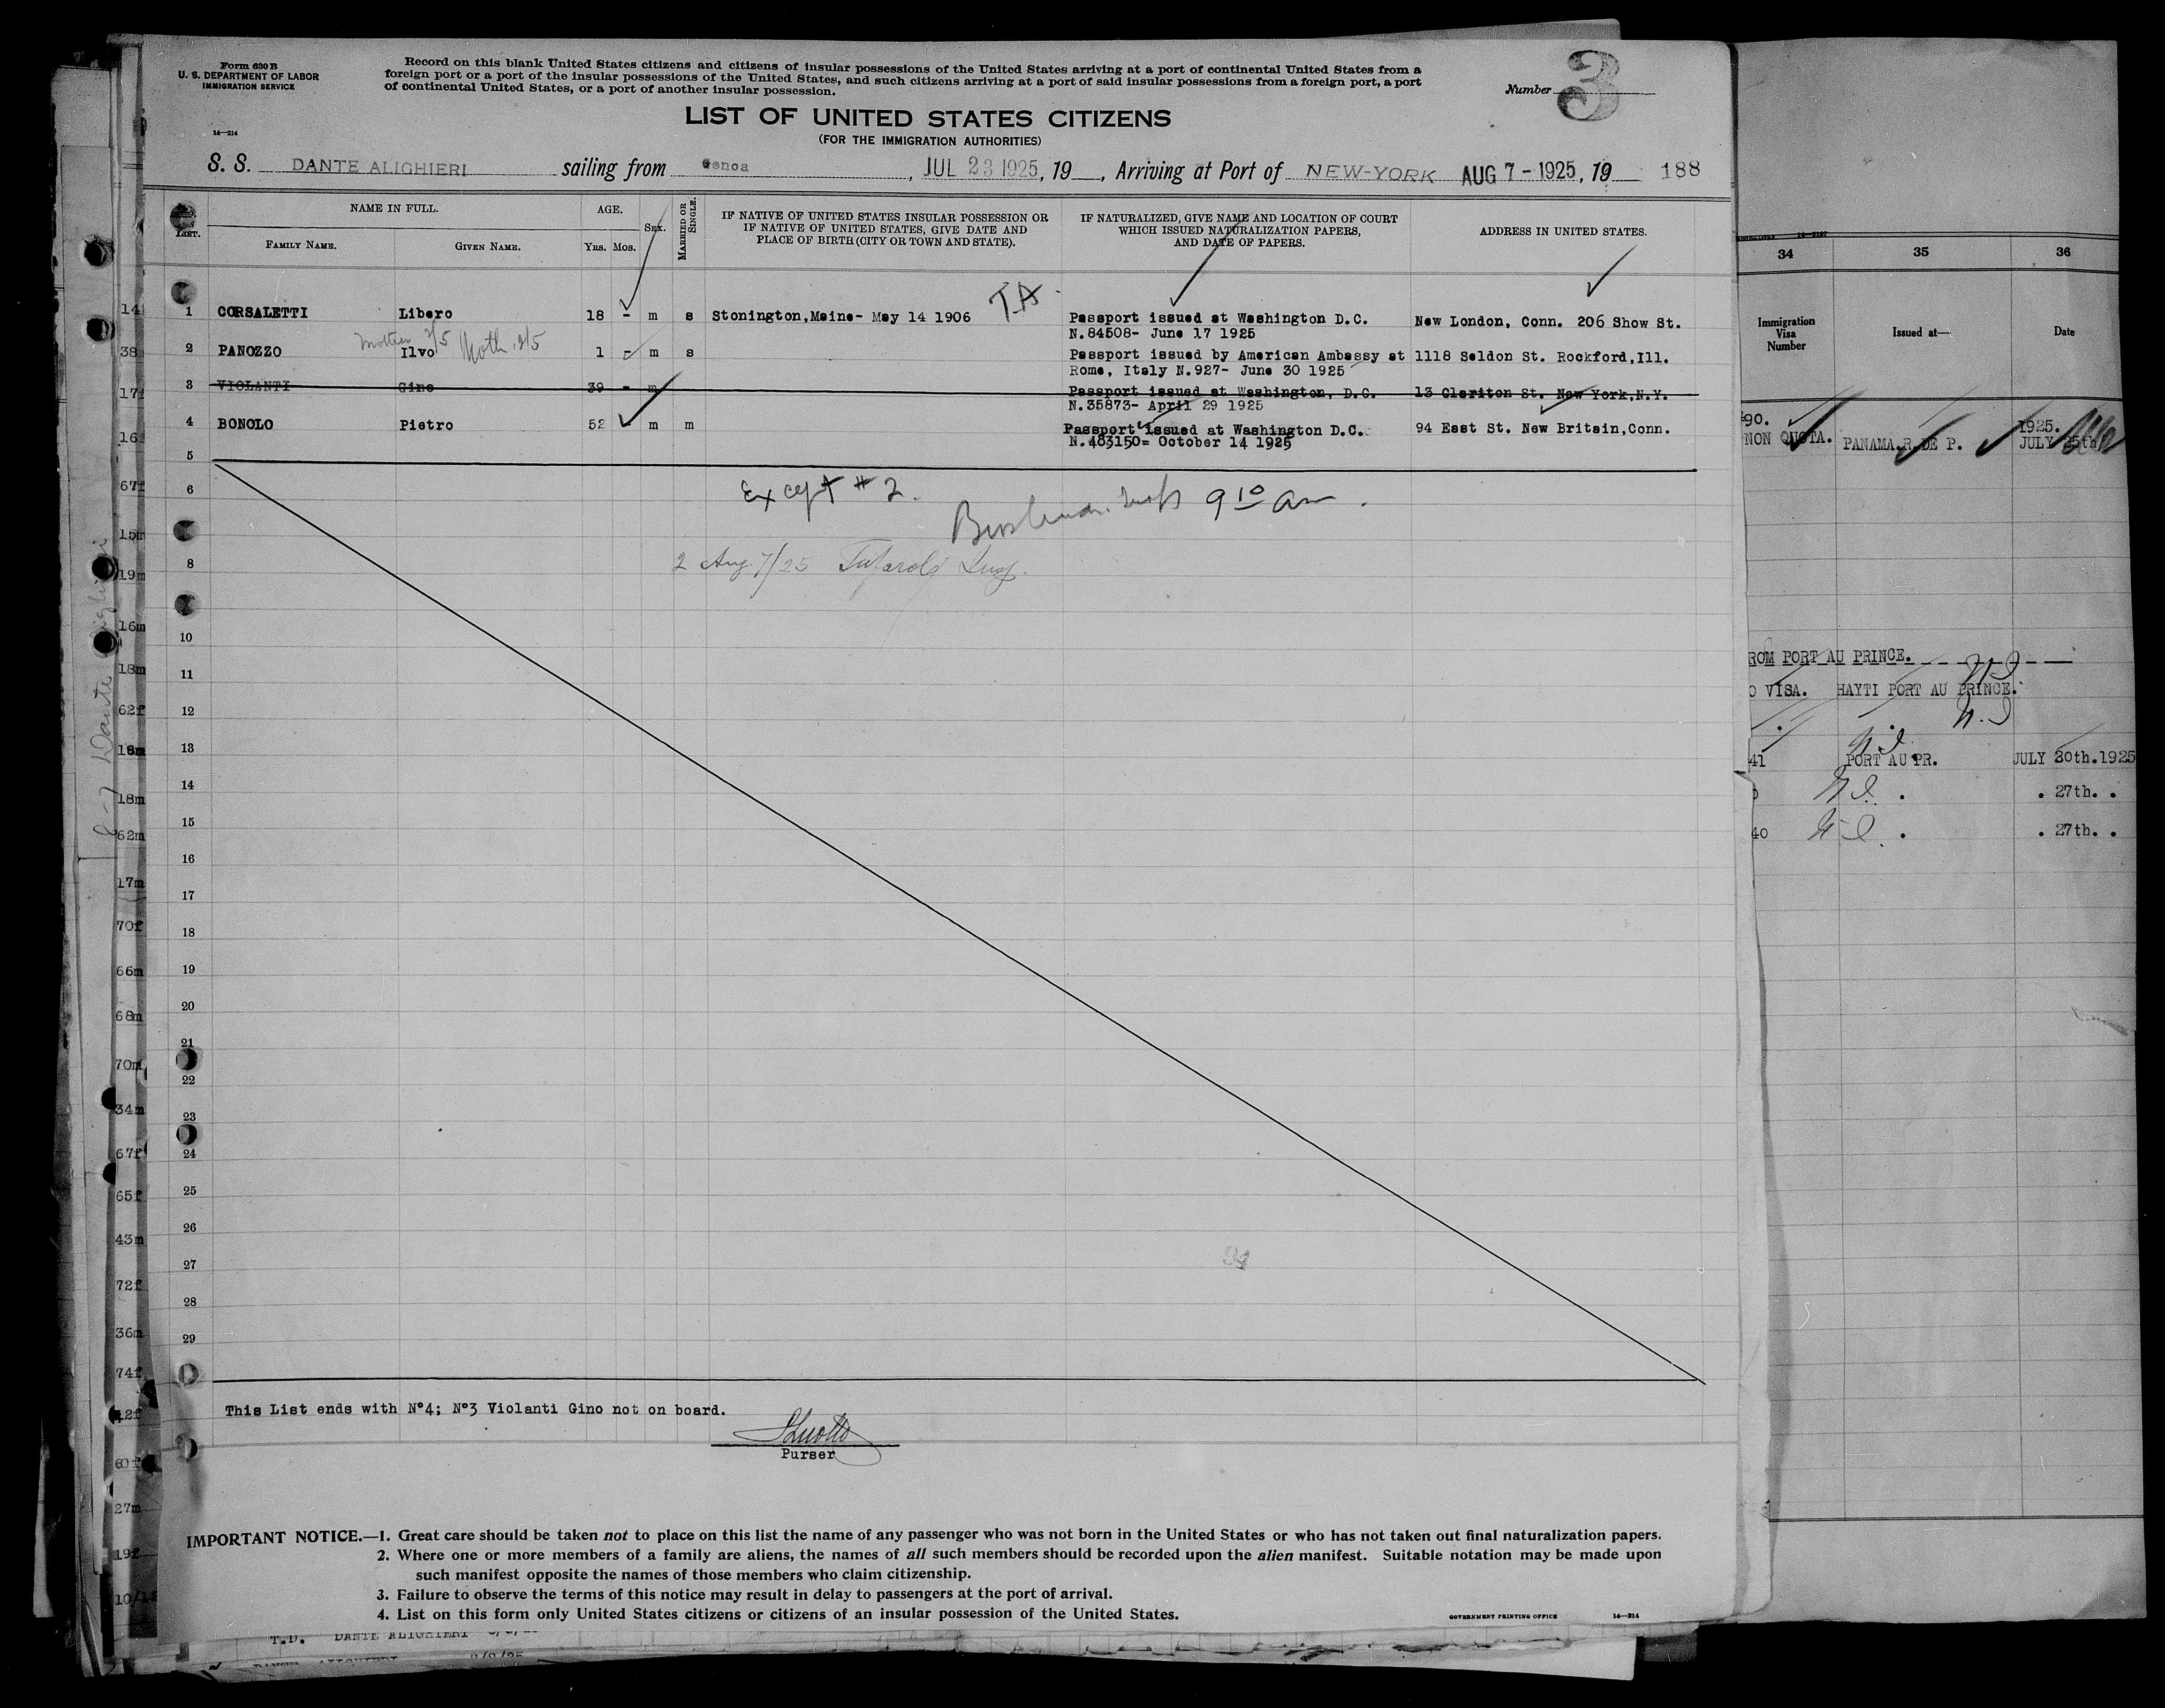 Form 630 B
U. S. DEPARTMENT OF LABOR
IMMIGRATION SERVICE
14—214
Record on this blank United States citizens and citizens of insular possessions of the United States arriving at a port of continental United States from a
foreign port or a port of the insular possessions of the United States, and such citizens arriving at a port of said insular possessions from a foreign port, a port
of continental United States, or a port of another insular possession.
Number 3
LIST OF UNITED STATES CITIZENS
(FOR THE IMMIGRATION AUTHORITIES)
S. S. DANTE ALIGHIERI sailing from Genoa, JUL 23 1925, 19__, Arriving at Port of NEW-YORK AUG 7 - 1925, 19__ 188
LIST.
NAME IN FULL.
FAMILY NAME. GIVEN NAME.
AGE.
YRS. MOS.
SEX.
MARRIED OR SINGLE.
IF NATIVE OF UNITED STATES INSULAR POSSESSION OR
IF NATIVE OF UNITED STATES, GIVE DATE AND
PLACE OF BIRTH (CITY OR TOWN AND STATE).
IF NATURALIZED, GIVE NAME AND LOCATION OF COURT
WHICH ISSUED NATURALIZATION PAPERS,
AND DATE OF PAPERS.
ADDRESS IN UNITED STATES.
T.A.
1 CORSALETTI Libero 18 - m s Stonington,Maine- May 14 1906 Passport issued at Washington D.C. New London, Conn. 206 Show St.
N.84508- June 17 1925
mother 2/5 Moth. 2/5
2 PANOZZO Ilvo 1 - m s Passport issued by American Ambassy at 1118 Seldon St. Rockford,Ill.
Rome, Italy N.927- June 30 1925
3 VIOLANTI Gino 39 - m Passport issued at Washington, D.C. 13 Clariton St. New York,N.Y.
N.35873- April 29 1925
4 BONOLO Pietro 52 - m m Passport issued at Washington D.C. 94 East St. New Britain,Conn.
N.483150= October 14 1925
5
6
Except # 2.
9 10 am.
8
2 Aug. 7/25
10
11
12
13
14
15
16
17
18
19
20
21
22
23
24
25
26
27
94
28
29
This List ends with Nº4; Nº3 Violanti Gino not on board.
Purser
IMPORTANT NOTICE.—1. Great care should be taken not to place on this list the name of any passenger who was not born in the United States or who has not taken out final naturalization papers.
2. Where one or more members of a family are aliens, the names of all such members should be recorded upon the alien manifest. Suitable notation may be made upon
such manifest opposite the names of those members who claim citizenship.
3. Failure to observe the terms of this notice may result in delay to passengers at the port of arrival.
4. List on this form only United States citizens or citizens of an insular possession of the United States.
GOVERNMENT PRINTING OFFICE 14—214
T.D. DANTE ALIGHIERI
34 35 36
Immigration
Visa
Number
Issued at—
Date
90.
NON QUOTA. PANAMA.R.DE P.
1925.
JULY 25th
ROM PORT AU PRINCE.
O VISA. HAYTI PORT AU PRINCE.
41 PORT AU PR. JULY 30th.1925
. . 27th. .
40 . . 27th. .
17m
70f
66m
68m
70m
34m
67f
65f
43m
72f
36m
74f
42f
60f
27m
19f